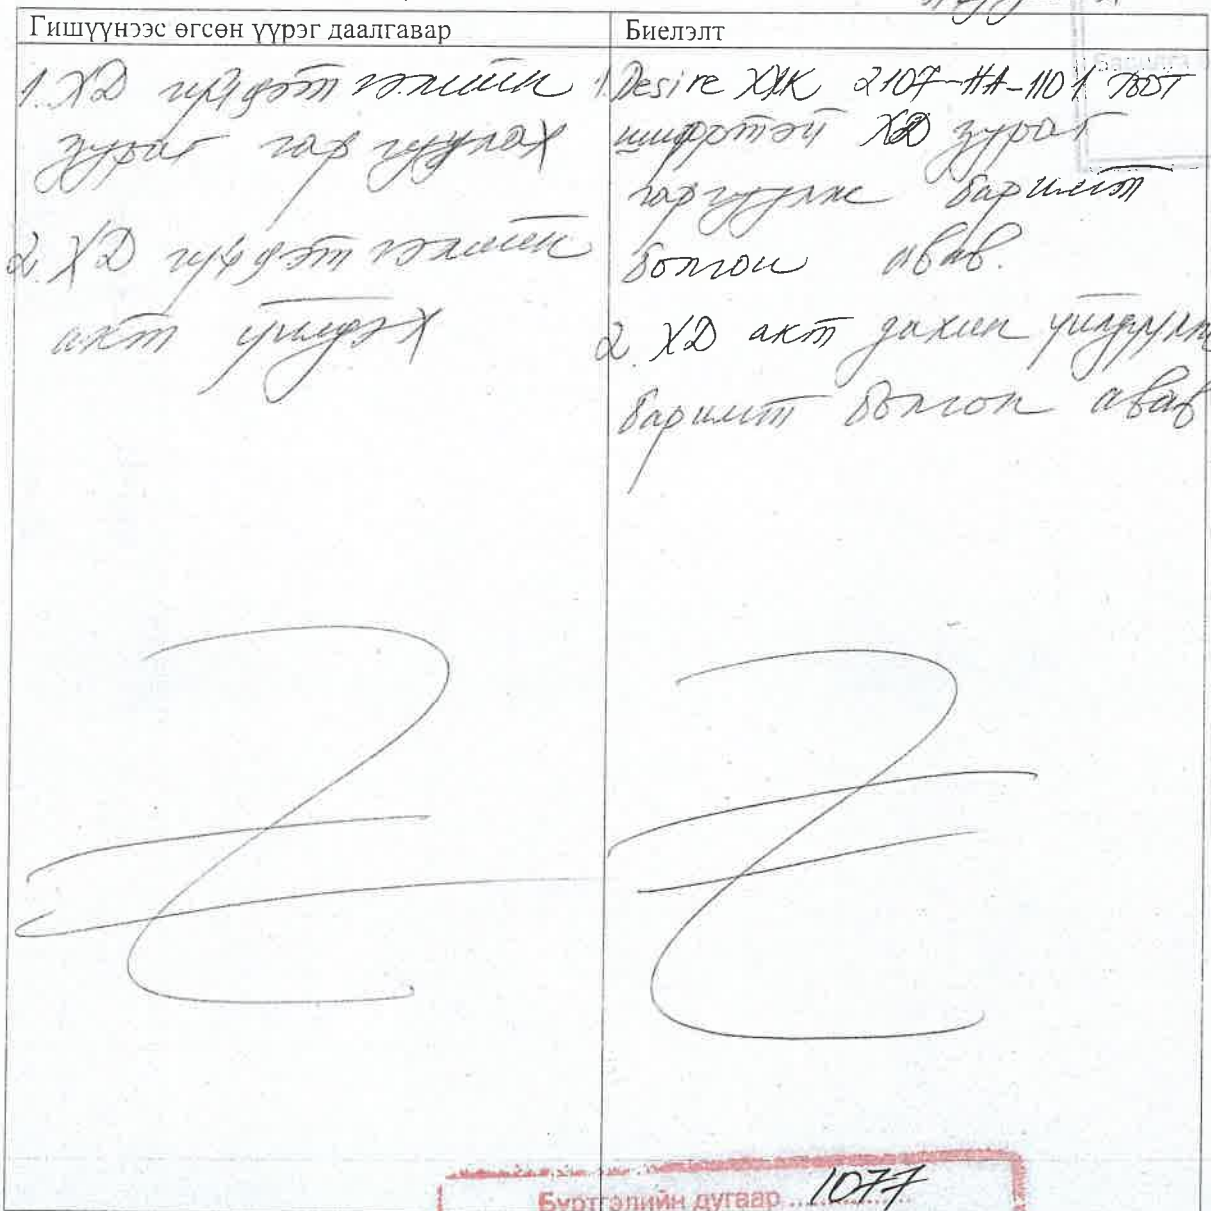 Гишүүнээс өгсөн үүрэг даалгавар
Биелэлт
1. ХД гүйдэт гэмийн
зураг гаргуулах
2. ХД гүйдэт гэмийн
акт үйлдэх
1. Desire ХХК 2107-НА-1101
шифртэй ХД зураг
гаргуулж баримт
болгон авав.
2. ХД акт дахин үйлдүүлж
баримт болгон авав
Бүртгэлийн дугаар 1077